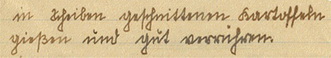 in Scheiben geschnittenen Kartoffeln
gießen und gut verrühren.